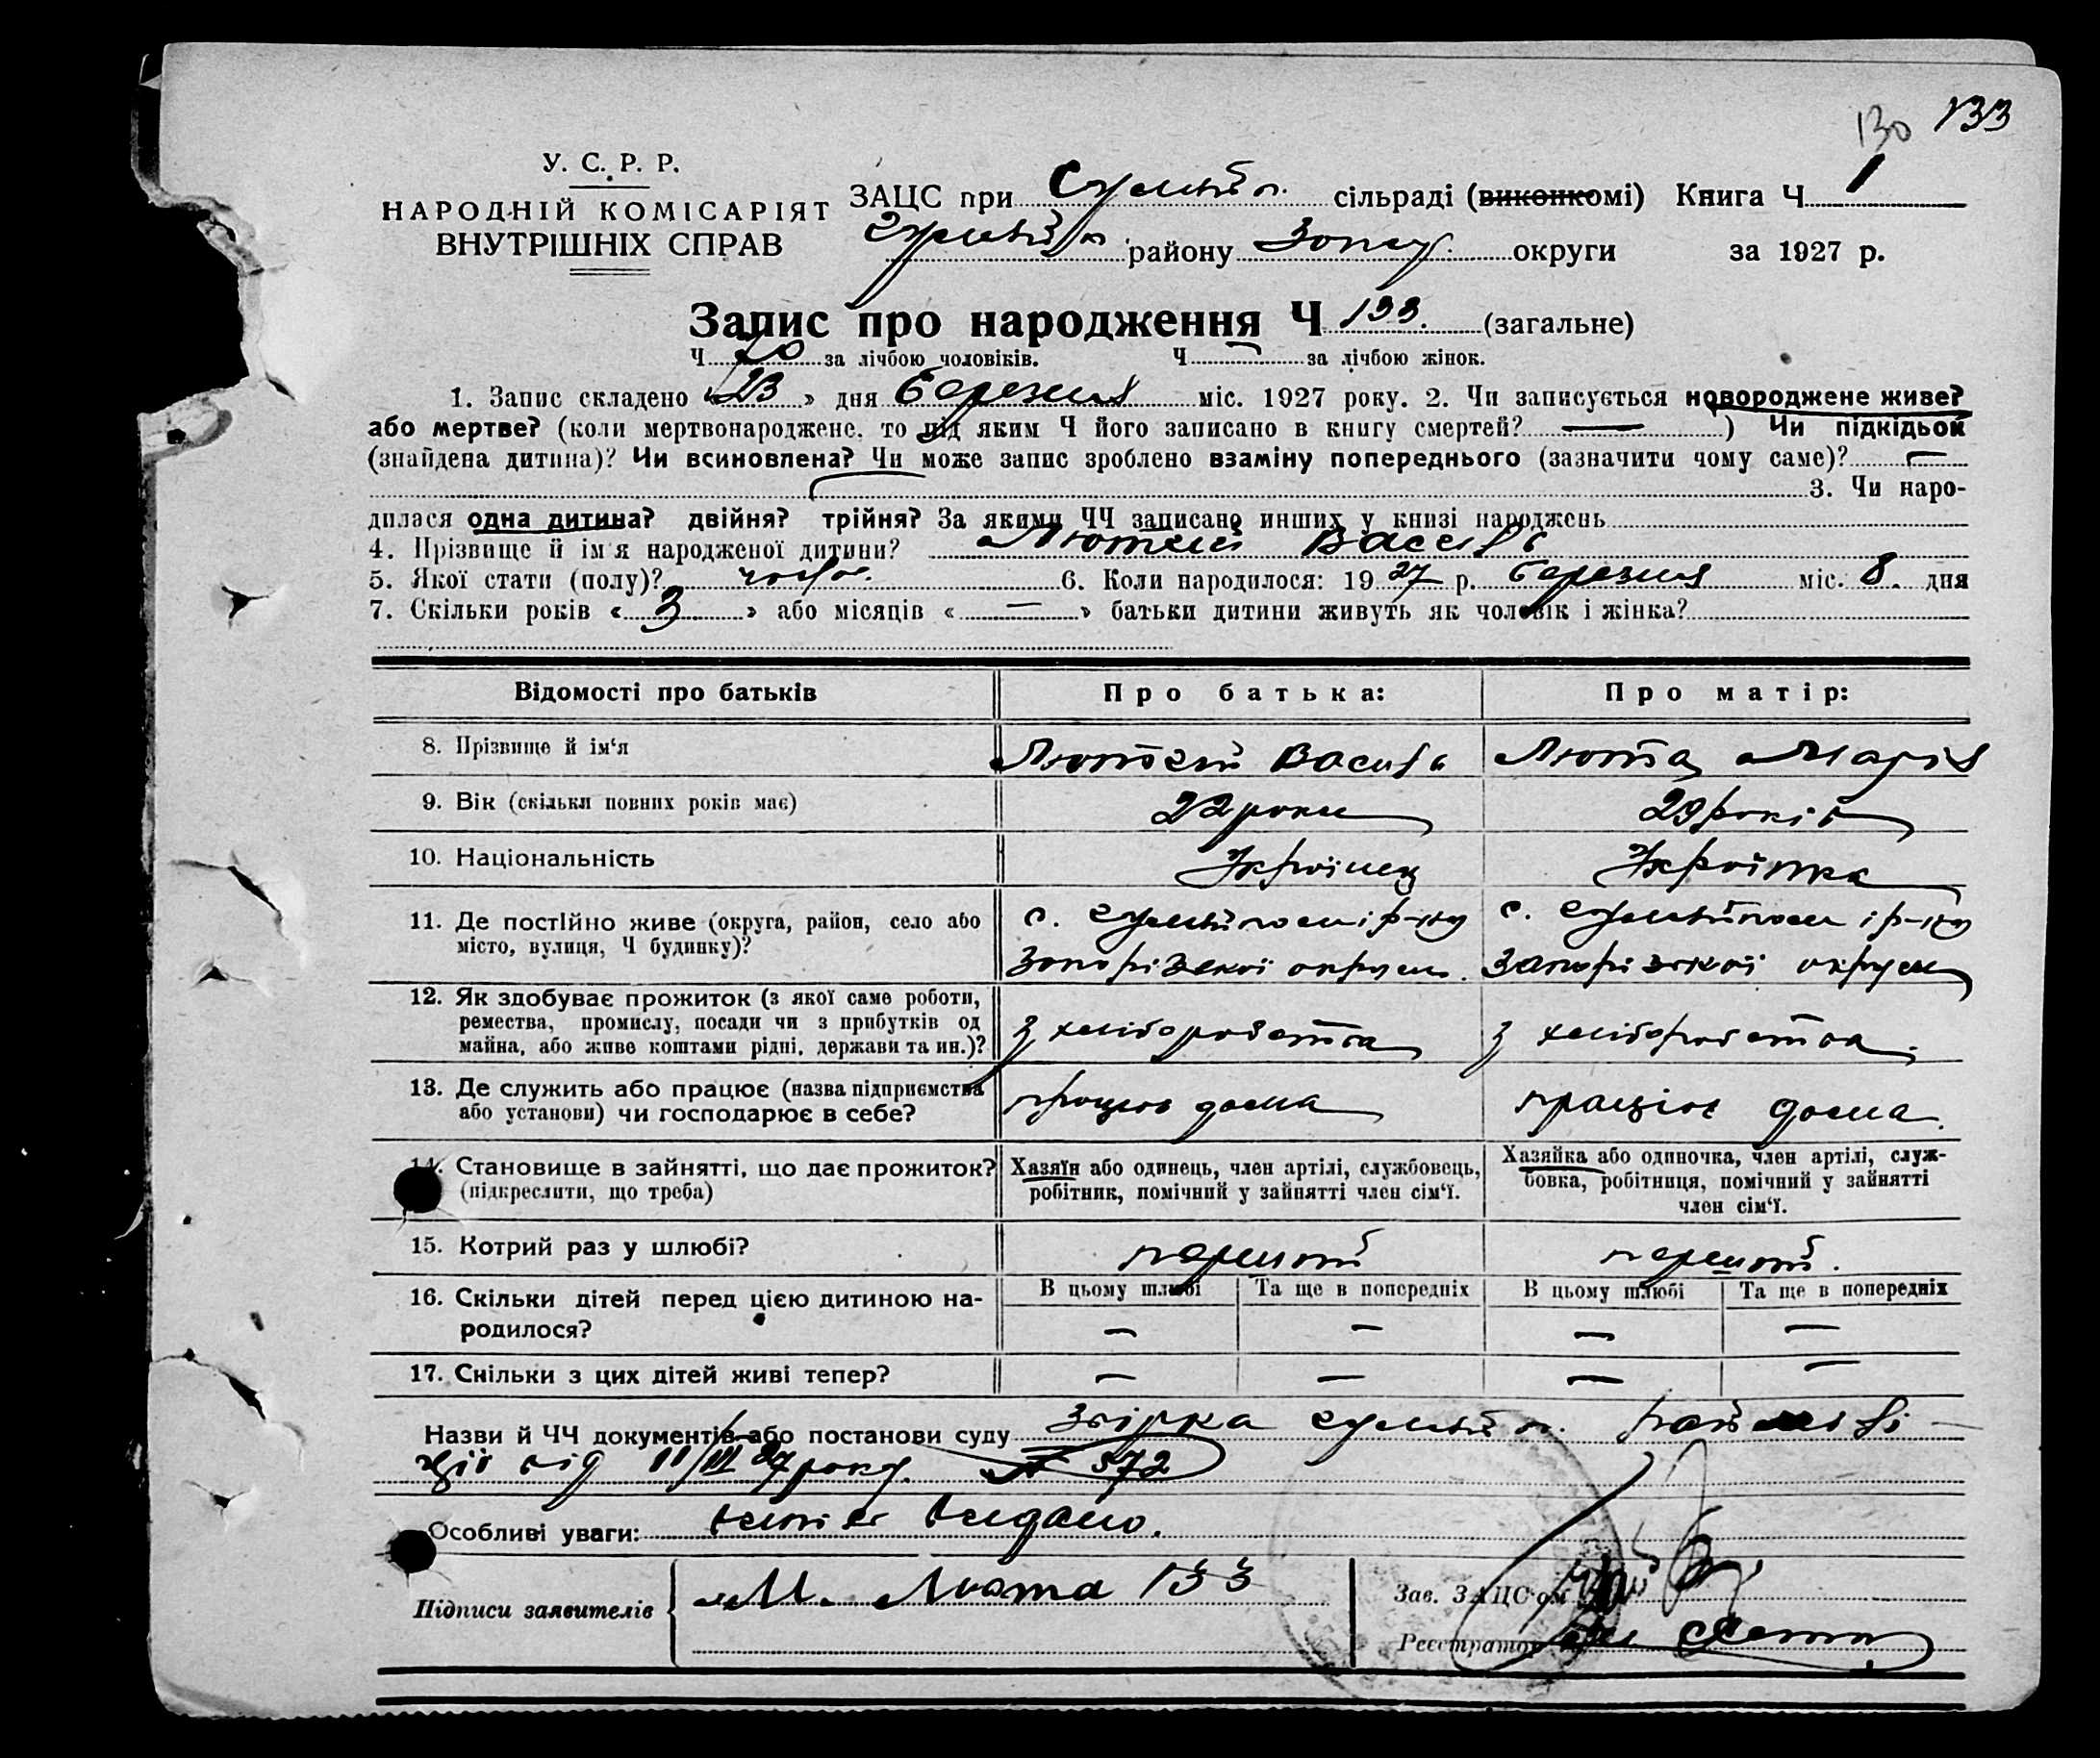 130 133
У. С. Р. Р.
НАРОДНІЙ КОМІСАРІЯТ
ВНУТРІШНІХ СПРАВ
ЗАЦС при сільраді (виконкомі) Книга Ч 1
району Запор. округи за 1927 р.
Запис про народження Ч 133. (загальне)
Ч 70 за лічбою чоловіків. Ч — за лічбою жінок.
1. Запис складено «23» дня Березня міс. 1927 року. 2. Чи записується новороджене живе?
або мертве? (коли мертвонароджене, то під яким Ч його записано в книгу смертей? — ) Чи підкідьок
(знайдена дитина)? Чи всиновлена? Чи може запис зроблено взаміну попереднього (зазначити чому саме)? —
3. Чи наро-
дилася одна дитина? двійня? трійня? За якими ЧЧ записано инших у книзі народжень
4. Прізвище й ім'я народженої дитини? Лютий Василь
5. Якої стати (полу)? чолов. 6. Коли народилося: 1927 р. березня міс. 8. дня
7. Скільки років «3» або місяців «—» батьки дитини живуть як чоловік і жінка?
Відомості про батьків Про батька: Про матір:
8. Прізвище й ім'я Лютий Василь Люта Марія
9. Вік (скільки повних років має) 22 роки 29 років
10. Національність Українец Українка
11. Де постійно живе (округа, район, село або
місто, вулиця, Ч будинку)?
с. і р-ну с. і р-ну
Запорізької округи. Запорізької округи
12. Як здобуває прожиток (з якої саме роботи,
ремества, промислу, посади чи з прибутків од
майна, або живе коштами рідні, держави та ин.)?
з хліборобства з хліборобства.
13. Де служить або працює (назва підприємства
або установи) чи господарює в себе?
працює дома працює дома.
14. Становище в зайнятті, що дає прожиток?
(підкреслити, що треба)
Хазяїн або одинець, член артілі, службовець,
робітник, помічний у зайнятті член сім'ї.
Хазяйка або одиночка, член артілі, служ-
бовка, робітниця, помічний у зайнятті
член сім'ї.
15. Котрий раз у шлюбі? перший перший.
16. Скільки дітей перед цією дитиною на-
родилося?
В цьому шлюбі Та ще в попередніх В цьому шлюбі Та ще в попередніх
— — — —
17. Скільки з цих дітей живі тепер? — — — —
Назви й ЧЧ документів або постанови суду
від 11/III 27 року. № 572
Особливі уваги: видано.
Підписи заявителів М. Люта 133
Зав. ЗАЦС'ом
Реєстратор